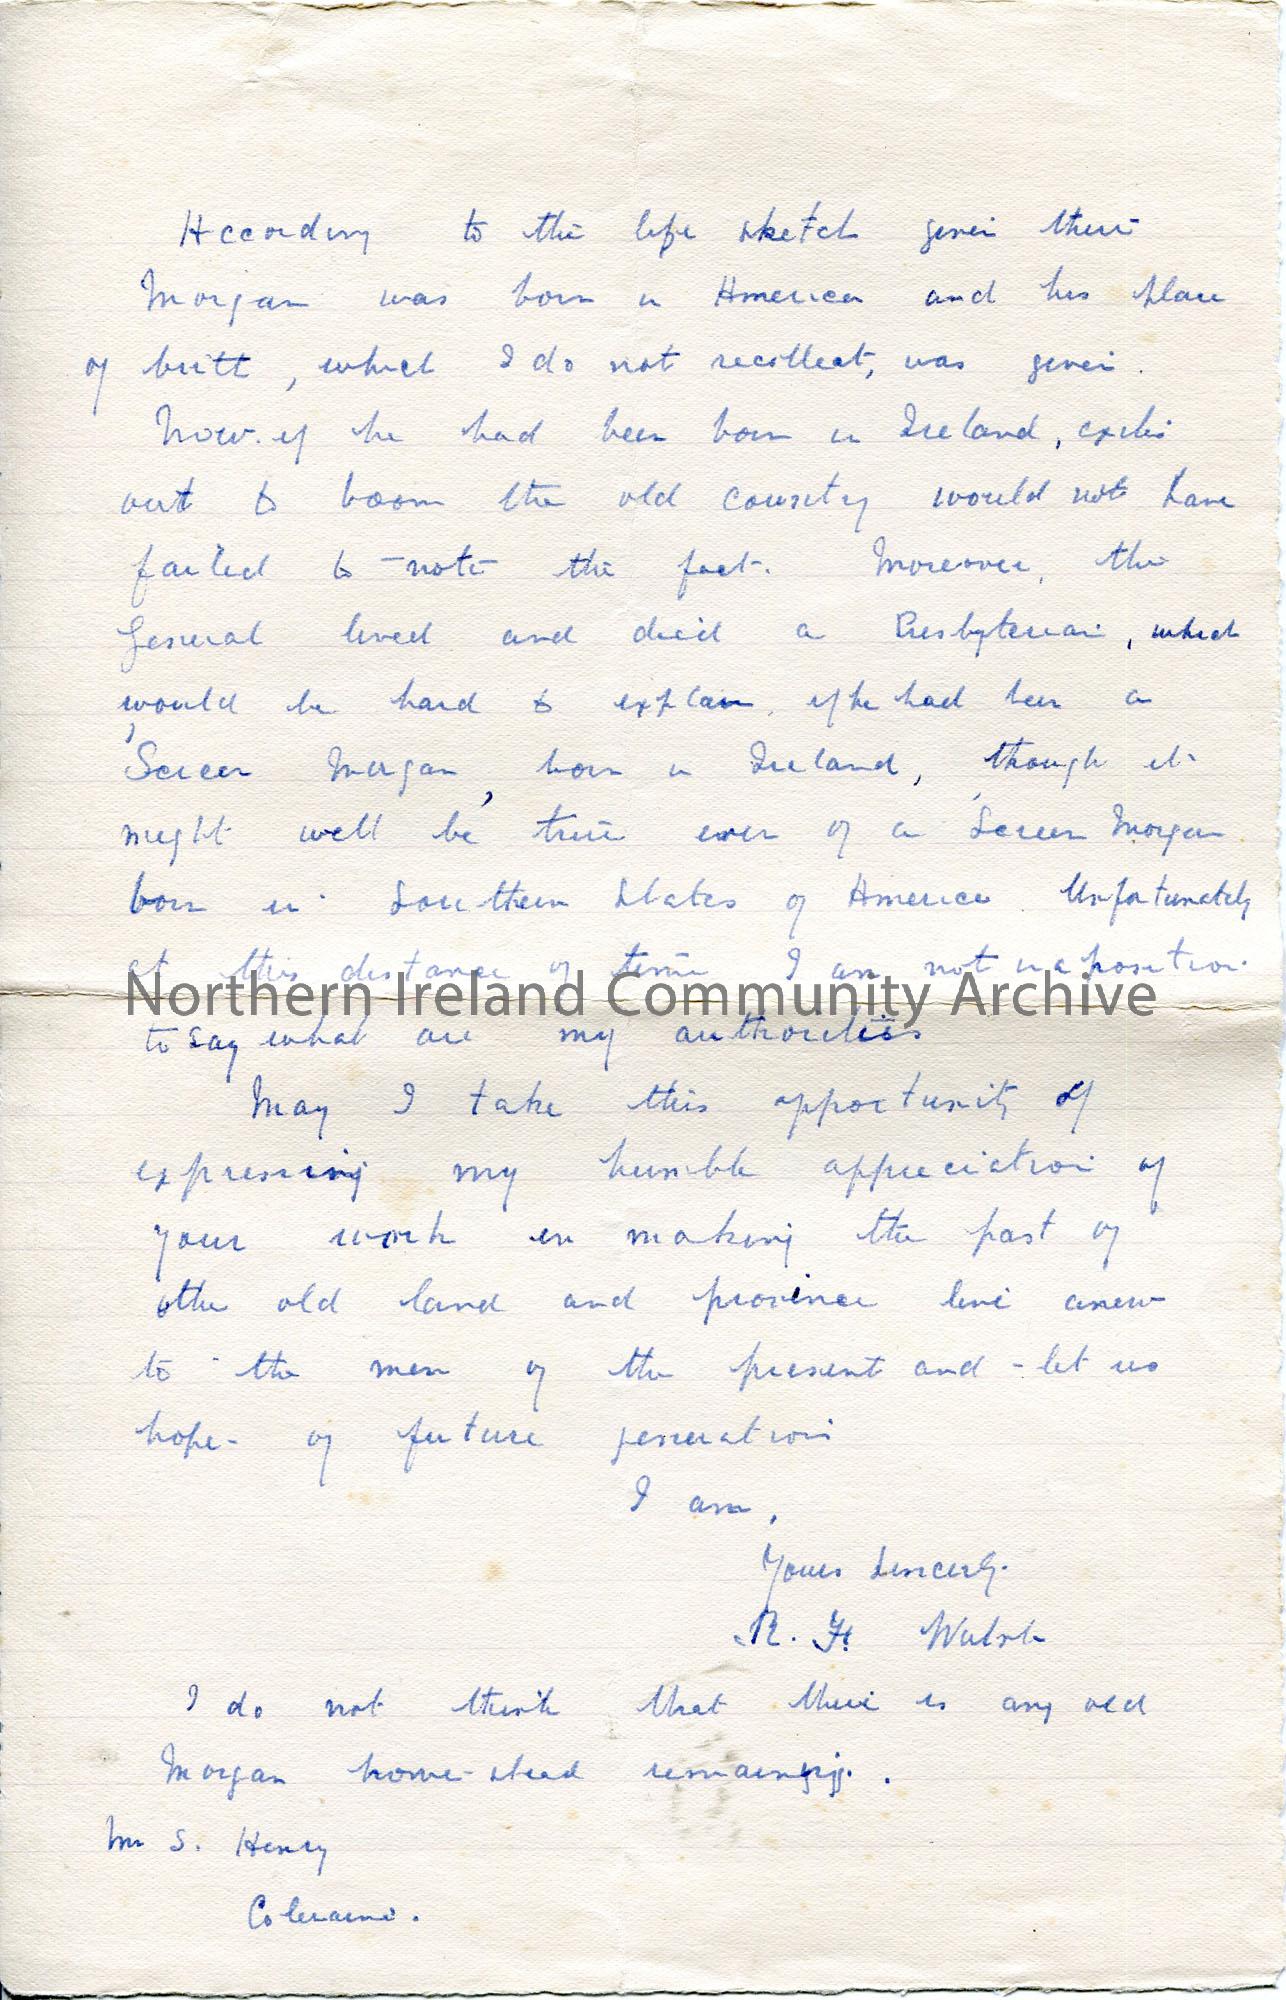 According to the life sketch given there
Morgan was born in America and his place
of birth, which I do not recollect, was given.
Now if he had been born in Ireland, exiles
out to boom the old country would not have
failed to note the fact. Moreover, the
General lived and died a Presbyterian, which
would be hard to explain, if he had been a
'Screen Morgan' born in Ireland, though it
might well be true even of a 'Screen Morgan
born in Southern States of America. Unfortunately
at this distance of time I am not in a position
Northern Ireland Community Archive
to say what are my authorities
May I take this opportunity of
expressing my humble appreciation of
your work in making the past of
the old land and province live anew
to the men of the present and - let us
hope - of future generations
I am,
Yours sincerely.
R. H. Walsh
I do not think that there is any old
Morgan home-stead remaining.
Mr S. Henry
Coleraine.